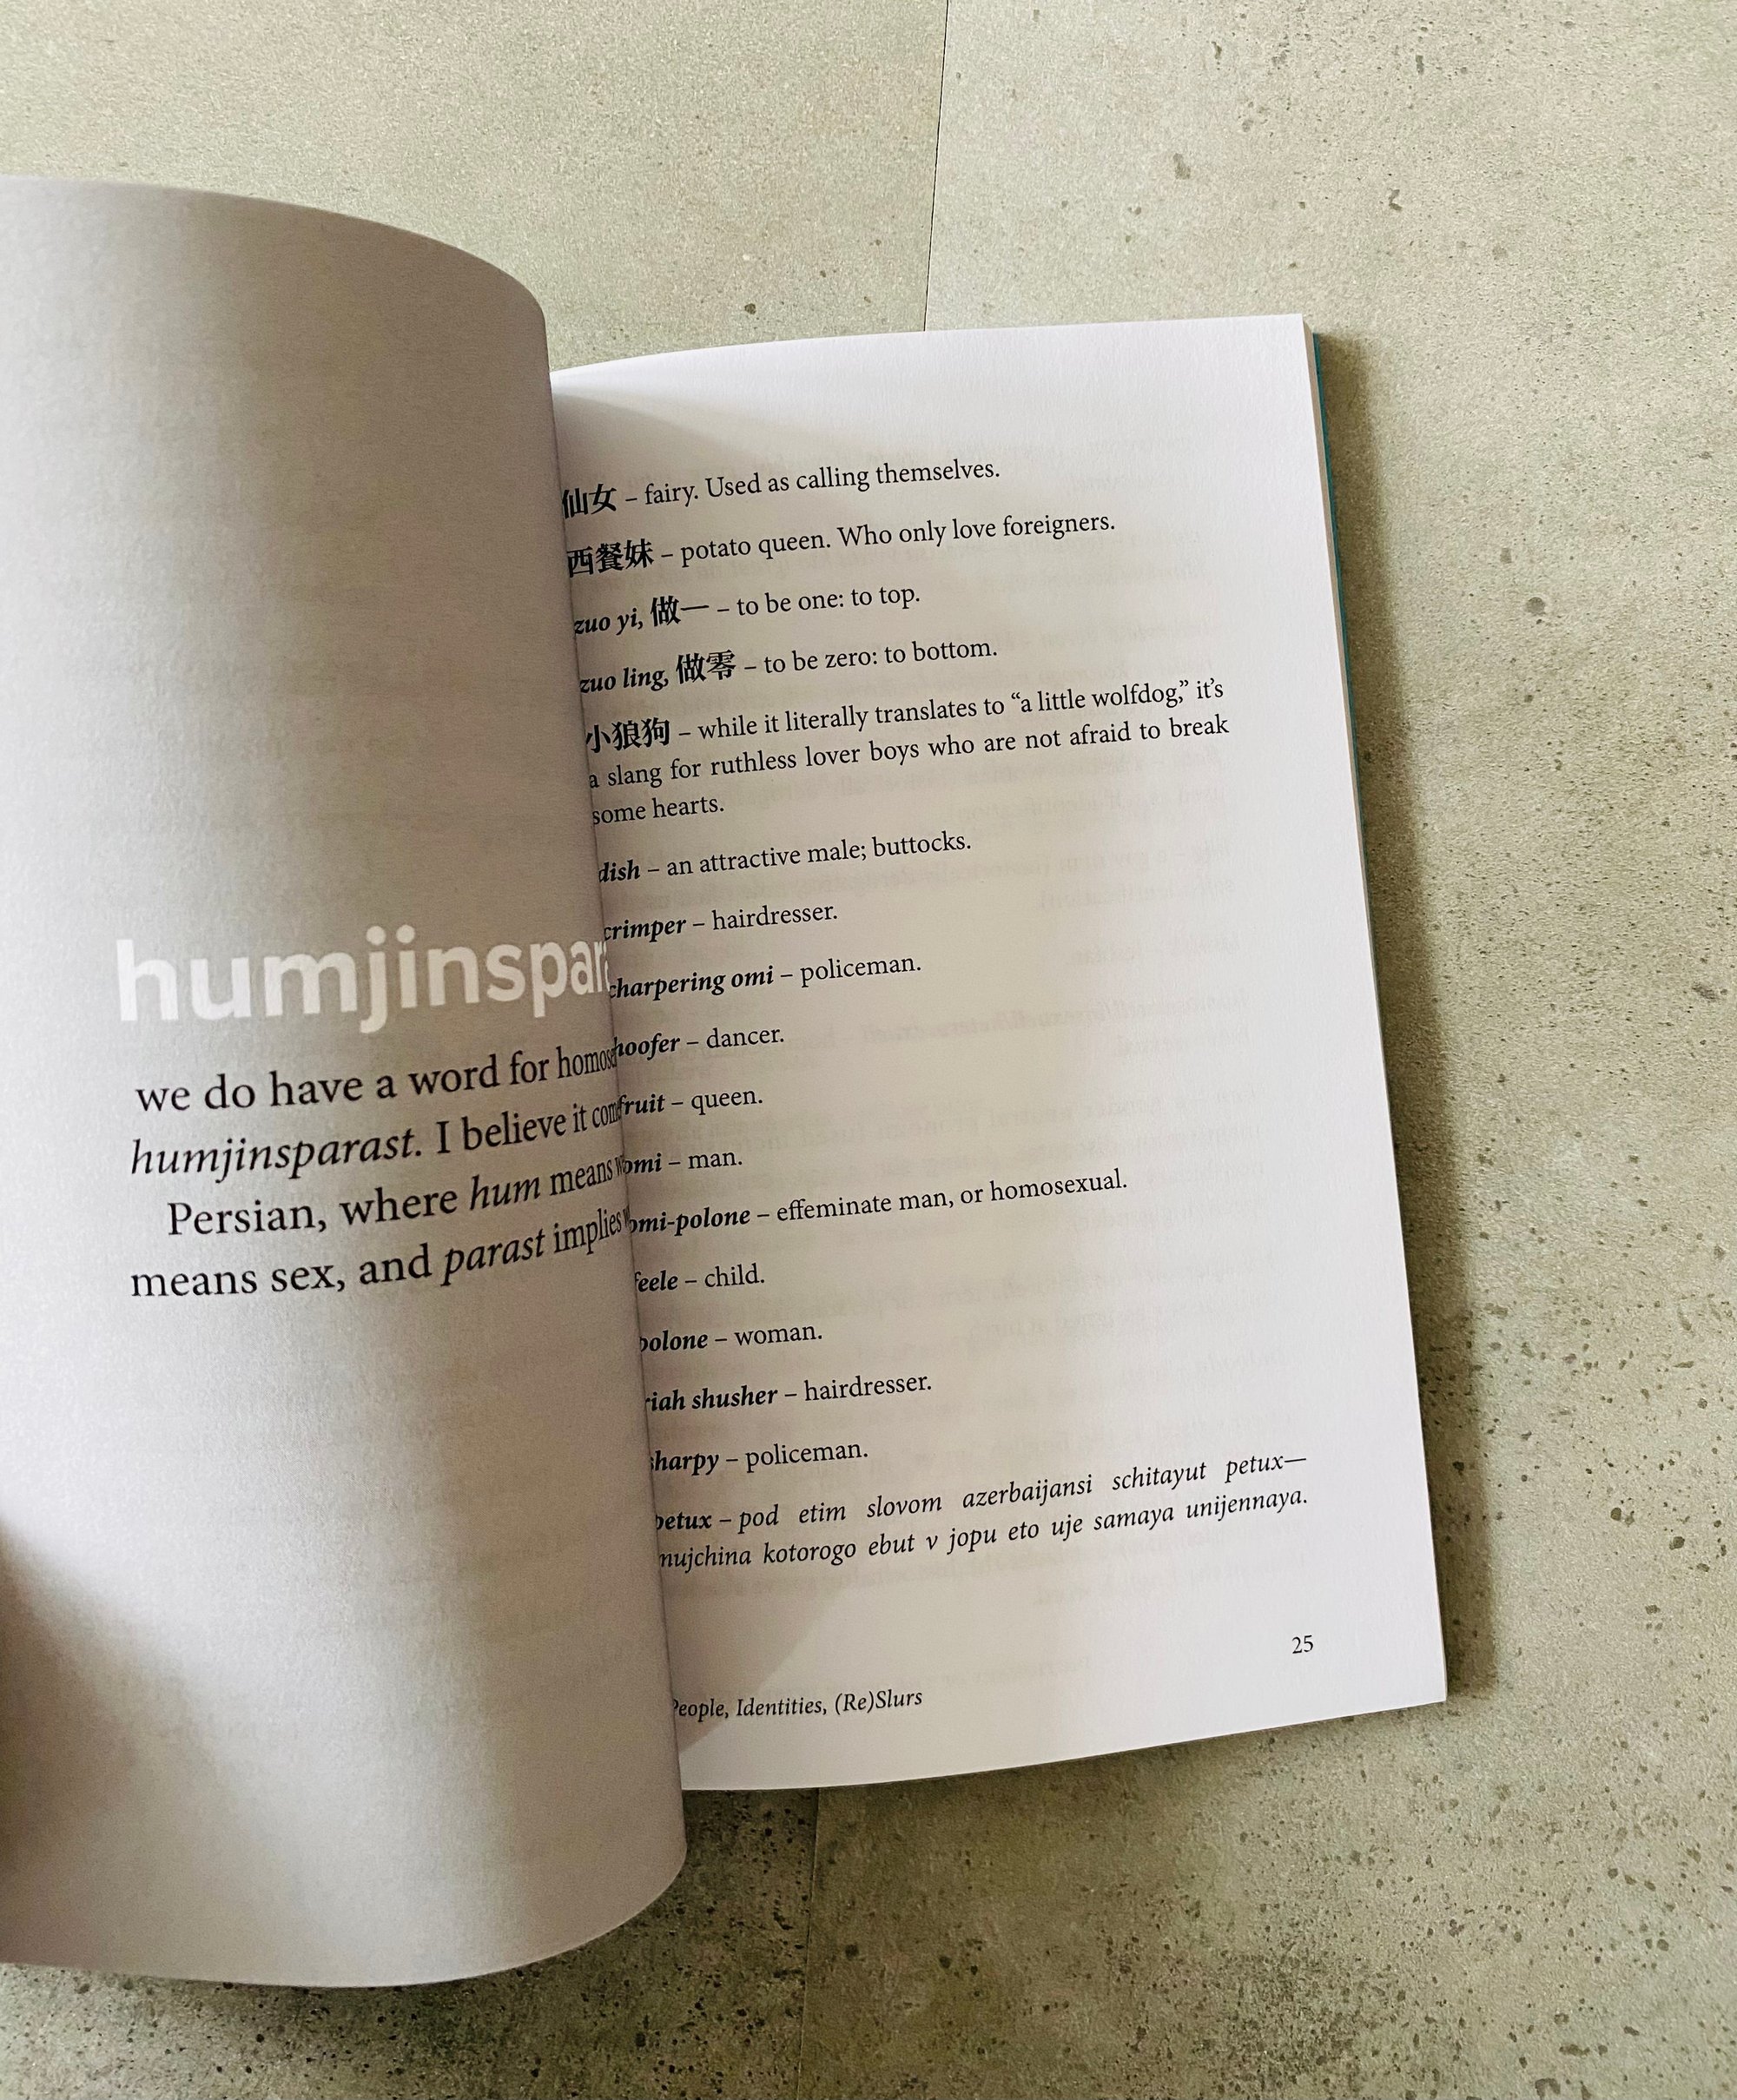 humjinspar
we do have a word for
humjinsparast. I believe it
Persian, where hum means
means sex, and parast implies
仙女 – fairy. Used as calling themselves.
西餐妹 – potato queen. Who only love foreigners.
zuo yi, 做一 – to be one: to top.
zuo ling, 做零 – to be zero: to bottom.
小狼狗 – while it literally translates to “a little wolfdog,” it’s
a slang for ruthless lover boys who are not afraid to break
some hearts.
dish – an attractive male; buttocks.
crimper – hairdresser.
charpering omi – policeman.
hoofer – dancer.
fruit – queen.
omi – man.
omi-polone – effeminate man, or homosexual.
feele – child.
polone – woman.
riah shusher – hairdresser.
sharpy – policeman.
petux – pod etim slovom azerbaijansi schitayut petux—
mujchina kotorogo ebut v jopu eto uje samaya unijennaya.
25
People, Identities, (Re)Slurs